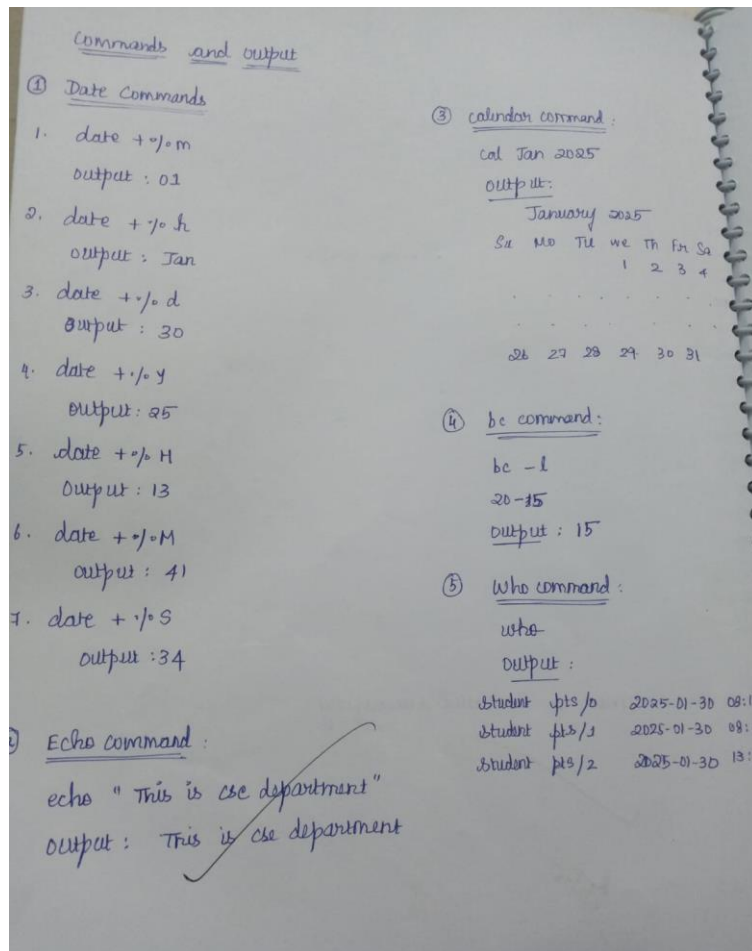 Commands and output
① Date Commands
1. date +%m
output : 01
2. date +%h
output : Jan
3. date +%d
output : 30
4. date +%y
output : 25
5. date +%H
output : 13
6. date +%M
output : 41
7. date +%S
output : 34
Echo command :
echo " This is cse department"
output : This is cse department
③ calendar command :
cal Jan 2025
output :
January 2025
Su Mo Tu we Th Fr Sa
1 2 3 4
. . . . . . .
. . . . . . .
26 27 28 29 30 31
④ bc command :
bc -l
20-15
output : 15
⑤ Who command :
who
output :
student pts/0 2025-01-30 08:
student pts/1 2025-01-30 08:
student pts/2 2025-01-30 13: